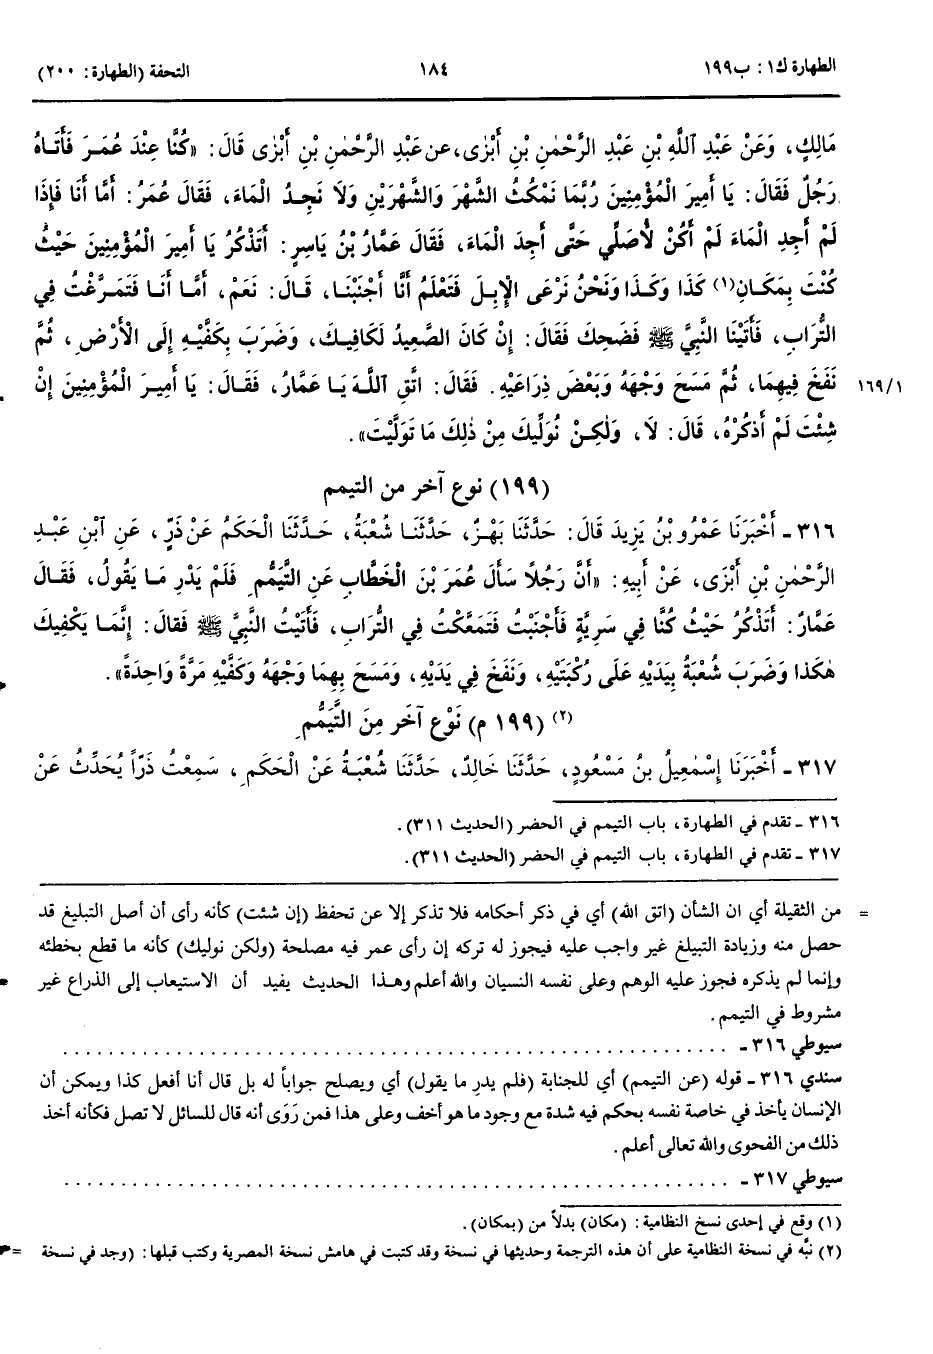 الطهارة ك١: ب١٩٩
١٨٤
التحفة (الطهارة: ٢٠٠)
مَالِكٍ، وَعَنْ عَبْدِ ٱللَّهِ بْنِ عَبْدِ الرَّحْمٰنِ بْنِ أَبْزٰى، عن عَبْدِ الرَّحْمٰنِ بْنِ أَبْزٰى قَالَ: «كُنَّا عِنْدَ عُمَـرَ فَأَتَـاهُ
رَجُلٌ فَقَالَ: يَا أَمِيرَ الْمُؤْمِنِينَ رُبَّمَا نَمْكُثُ الشَّهْرَ وَالشَّهْرَيْنِ وَلاَ نَجِـدُ الْمَاءَ، فَقَالَ عُمَرُ: أَمَّا أَنَا فَإِذَا
لَمْ أَجِدِ الْمَاءَ لَمْ أَكُنْ لأُصَلِّي حَتَّى أَجِدَ الْمَاءَ، فَقَالَ عَمَّارُ بْنُ يَاسِرٍ: أَتَذْكُرُ يَا أَمِيرَ الْمُؤْمِنِينَ حَيْثُ
كُنْتَ بِمَكَـانِ(١) كَذَا وَكَـذَا وَنَحْنُ نَرْعَى الْإِبِـلَ فَتَعْلَمُ أَنَّا أَجْنَبْنَـا، قَـالَ: نَعَمْ، أَمَّـا أَنَـا فَتَمَرَّغْتُ فِي
التُّرَابِ، فَأَتَيْنَا النَّبِيَّ ﷺ فَضَحِكَ فَقَالَ: إِنْ كَانَ الصَّعِيدُ لَكَافِيكَ، وَضَرَبَ بِكَفَّيْهِ إِلَى الْأَرْضِ، ثُمَّ
نَفَخَ فِيهِمَا، ثُمَّ مَسَحَ وَجْهَهُ وَبَعْضَ ذِرَاعَيْهِ. فَقَالَ: اتَّقِ اللَّـهَ يَـا عَمَّارُ، فَقَـالَ: يَا أَمِيـرَ الْمُؤْمِنِينَ إِنْ
١٦٩/١
شِئْتَ لَمْ أَذْكُرْهُ، قَالَ: لَا، وَلٰكِـنْ نُوَلِّيكَ مِنْ ذٰلِكَ مَا تَوَلَّيْتَ».
(١٩٩) نوع آخر من التيمم
٣١٦ ـ أَخْبَرَنَا عَمْرُو بْنُ يَزِيدَ قَالَ: حَدَّثَنَا بَهْـزٌ، حَدَّثَنَـا شُعْبَةُ، حَـدَّثَنَا الْحَكَمُ عَنْ ذَرٍّ، عَنِ ٱبْنِ عَبْـدِ
الرَّحْمٰنِ بْنِ أَبْزَى، عَنْ أَبِيهِ: «أَنَّ رَجُلًا سَأَلَ عُمَرَ بْنَ الْخَطَّابِ عَنِ التَّيَمُّمِ فَلَمْ يَدْرِ مَـا يَقُولُ، فَقَـالَ
عَمَّارٌ: أَتَذْكُرُ حَيْثُ كُنَّا فِي سَرِيَّةٍ فَأَجْنَبْتُ فَتَمَعَّكْتُ فِي التُّرَابِ، فَأَتَيْتُ النَّبِيَّ ﷺ فَقَالَ: إِنَّمَا يَكْفِيكَ
هٰكَذَا وَضَرَبَ شُعْبَةُ بِيَدَيْهِ عَلَى رُكْبَتَيْهِ، وَنَفَخَ فِي يَدَيْهِ، وَمَسَحَ بِهِمَا وَجْهَهُ وَكَفَّيْهِ مَرَّةً وَاحِدَةً».
(٢) (١٩٩ م) نَوْع آخَر مِنَ التَّيَمُّمِ
٣١٧ ـ أَخْبَرَنَا إِسْمٰعِيلُ بنُ مَسْعُودٍ، حَدَّثَنَا خَالِدٌ، حَدَّثَنَا شُعْبَـةُ عَنْ الْحَكَمِ، سَمِعْتُ ذَرّاً يُحَدِّثُ عَنْ
٣١٦ ـ تقدم في الطهارة، باب التيمم في الحضر (الحديث ٣١١).
٣١٧ ـ تقدم في الطهارة، باب التيمم في الحضر (الحديث ٣١١).
= من الثقيلة أي ان الشأن (اتق الله) أي في ذكر أحكامه فلا تذكر إلا عن تحفظ (إن شئت) كأنه رأى أن أصل التبليغ قد
حصل منه وزيادة التبيلغ غير واجب عليه فيجوز له تركه إن رأى عمر فيه مصلحة (ولكن نوليك) كأنه ما قطع بخطئه
وإنما لم يذكره فجوز عليه الوهم وعلى نفسه النسيان والله أعلم وهـذا الحديث يفيد أن الاستيعاب إلى الذراع غير
مشروط في التيمم.
سيوطي ٣١٦ ـ . . . . . . . . . . . . . . . . . . . . . . . . . . . . . . . . . . . . . . . .
سندي ٣١٦ ـ قوله (عن التيمم) أي للجنابة (فلم يدرِ ما يقول) أي ويصلح جواباً له بل قال أنا أفعل كذا ويمكن أن
الإنسان يأخذ في خاصة نفسه بحكم فيه شدة مع وجود ما هو أخف وعلى هذا فمن رَوَى أنه قال للسائل لا تصل فكأنه أخذ
ذلك من الفحوى والله تعالى أعلم.
سيوطي ٣١٧ ـ . . . . . . . . . . . . . . . . . . . . . . . . . . . . . . . . . . . . . . . .
(١) وقع في إحدى نسخ النظامية: (مكان) بدلاً من (بمكان).
(٢) نبَّه في نسخة النظامية على أن هذه الترجمة وحديثها في نسخة وقد كتبت في هامش نسخة المصرية وكتب قبلها: (وجد في نسخة =